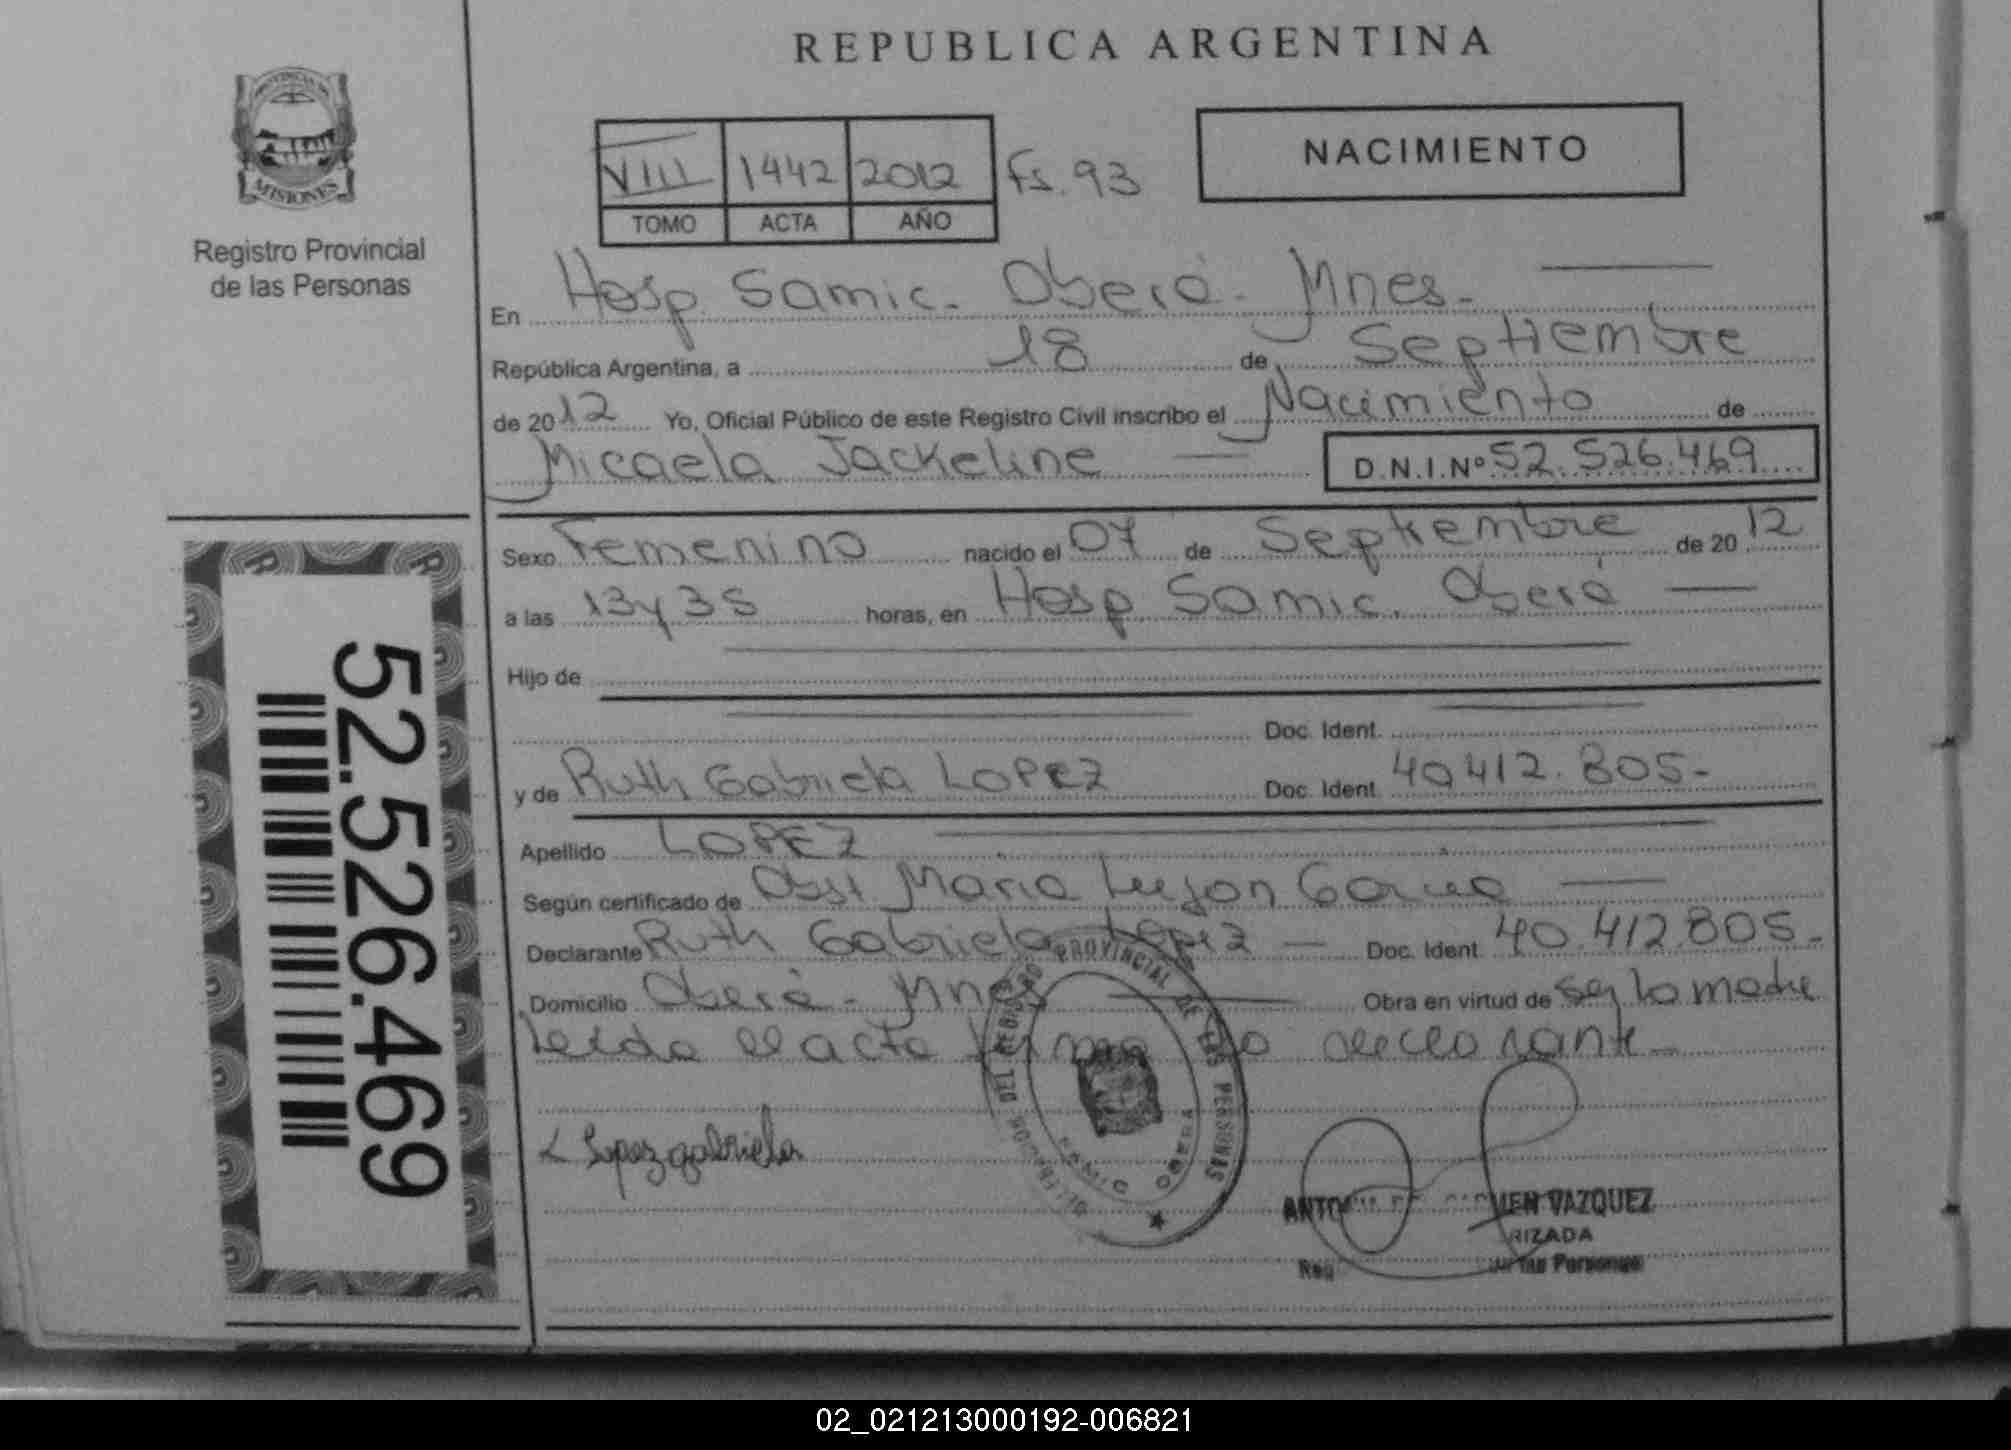 REPUBLICA ARGENTINA
PROVINCIA DE
MISIONES
Registro Provincial
de las Personas
VIII 1442 2012 Fs. 93
TOMO ACTA AÑO
NACIMIENTO
En Hosp. Samic. Oberá. Mnes.
República Argentina, a 18 de Septiembre
de 2012 Yo, Oficial Público de este Registro Civil inscribo el Nacimiento de
Micaela Jackeline D.N.I.Nº 52.526.469
Sexo Femenino nacido el 07 de Septiembre de 2012
a las 13 y 35 horas, en Hosp Samic. Oberá
Hijo de
Doc. Ident.
y de Ruth Gabriela LOPEZ Doc. Ident. 40.412.805-
Apellido LOPEZ
Según certificado de Obst María Lujan
Declarante Ruth Gabriela Lopez Doc. Ident. 40.412.805-
Domicilio Oberá - Mnes Obra en virtud de ser la madre
Leida el acta firma la declarante
Lopez gabriela
PROVINCIAL DE LAS PERSONAS
DEL REGISTRO
OBERA
ANTO CARMEN VAZQUEZ
RIZADA
Reg las Personas
52.526.469
02_021213000192-006821